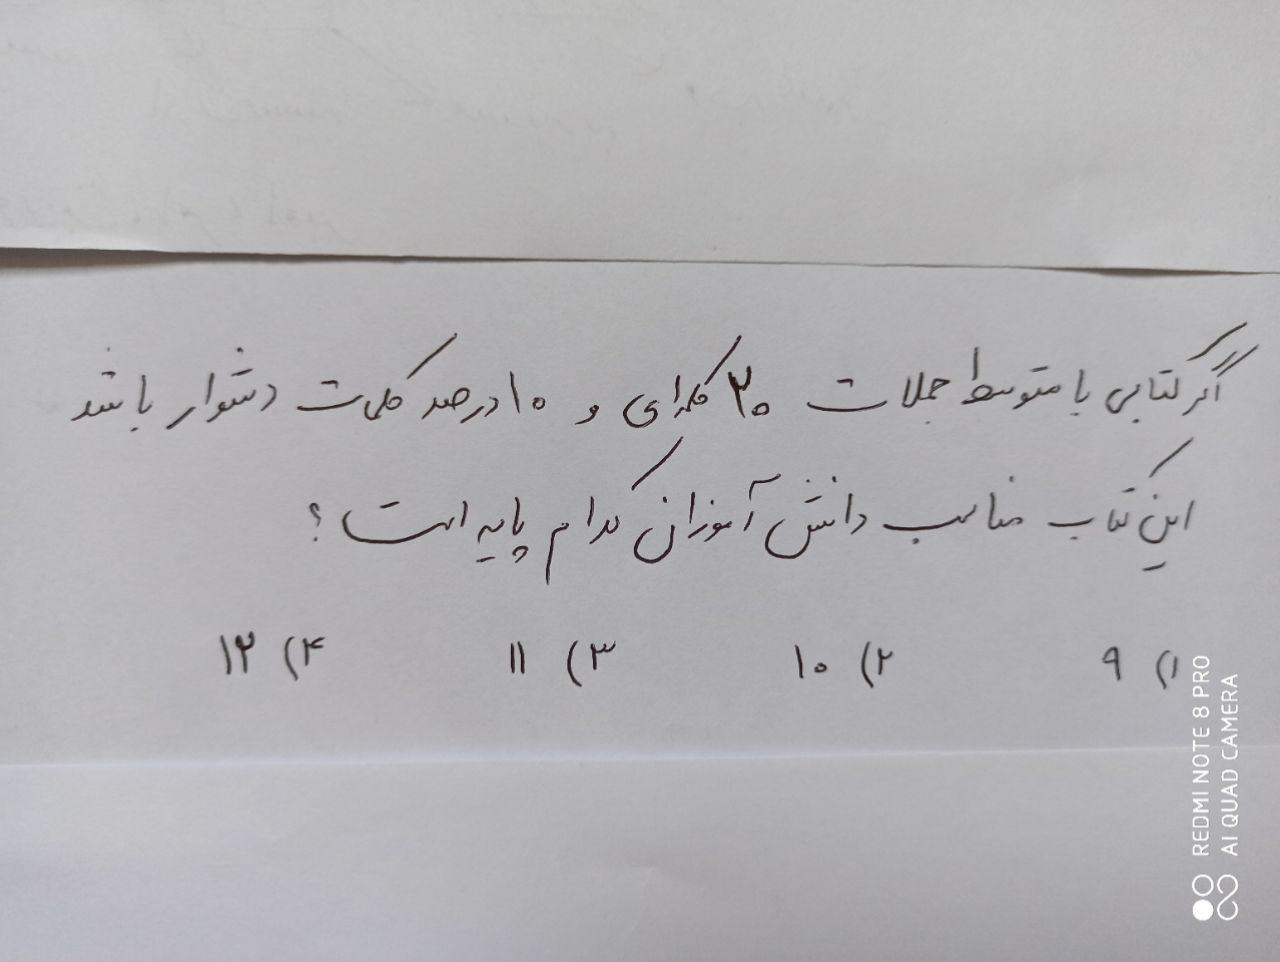 اگر کتابی با متوسط جملات ۲۰ کلمه‌ای و ۱۰ درصد کلمات دشوار باشد
این کتاب مناسب دانش آموزان کدام پایه است؟
۱) ۹ ۲) ۱۰ ۳) ۱۱ ۴) ۱۲
REDMI NOTE 8 PRO
AI QUAD CAMERA